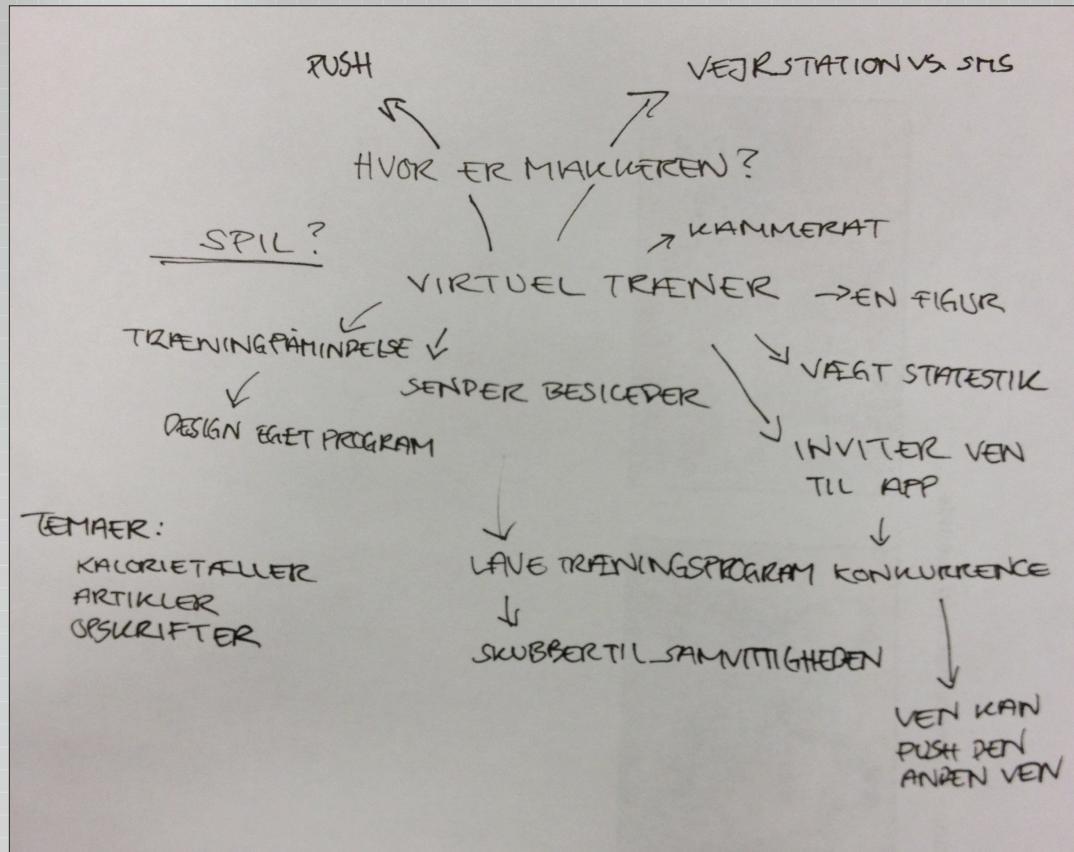 PUSH
VEJRSTATION VS. SMS
HVOR ER MAKKEREN?
SPIL?
KAMMERAT
VIRTUEL TRÆNER
EN FIGUR
TRÆNINGPÅMINDELSE
SENDER BESKEDER
VÆGT STATESTIK
DESIGN EGET PROGRAM
INVITER VEN
TIL APP
TEMAER:
KALORIETÆLLER
ARTIKLER
OPSKRIFTER
LAVE TRÆNINGSPROGRAM
KONKURRENCE
SKUBBER TIL SAMVITTIGHEDEN
VEN KAN
PUSH DEN
ANDEN VEN